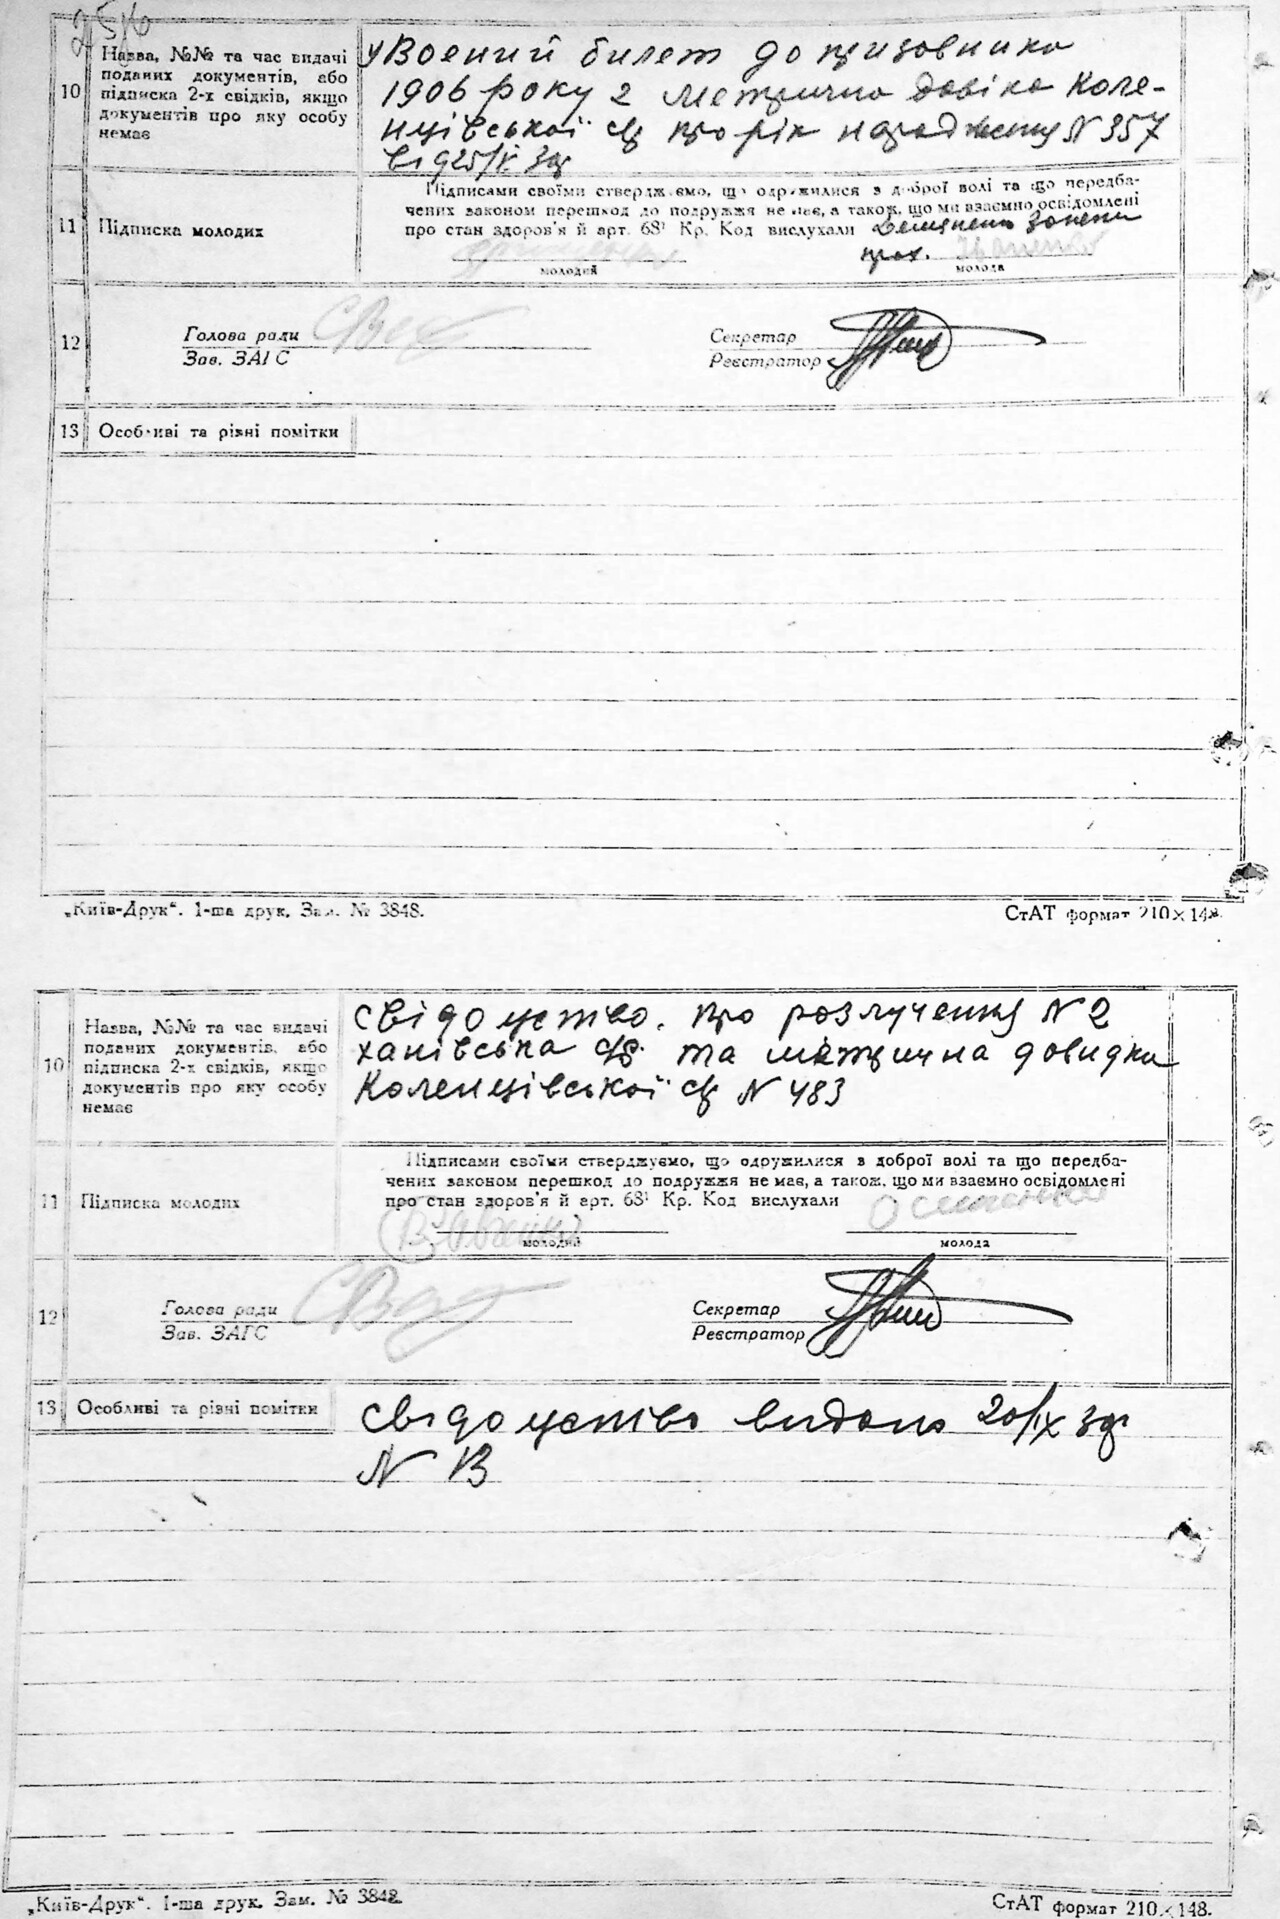 10
Назва, №№ та час видачі
поданих документів, або
підписка 2-х свідків, якщо
документів про яку особу
немає
Военний билет допризовника
1906 року 2 Метрична довіка Коле-
нцівської с/р про рік народження N 357
від 25/V 3
11
Підписка молодих
Підписами своїми стверджуємо, що одружилися з доброї волі та що передба-
чених законом перешкод до подружжя не має, а також, що ми взаємно освідомлені
про стан здоров'я й арт. 68¹ Кр. Код вислухали
молодий
молода
12
Голова ради
Зав. ЗАГС
Секретар
Реєстратор
13
Особливі та різні помітки
„Київ-Друк“. 1-ша друк. Зам. № 3848.
СтАТ формат 210×148.
10
Назва, №№ та час видачі
поданих документів, або
підписка 2-х свідків, якщо
документів про яку особу
немає
свідоцтво. про розлучення N 2
ханівська с/р. та метрична довидка
Коленцівської с/р N 483
11
Підписка молодих
Підписами своїми стверджуємо, що одружилися з доброї волі та що передба-
чених законом перешкод до подружжя не має, а також, що ми взаємно освідомлені
про стан здоров'я й арт. 68¹ Кр. Код вислухали
молодий
молода
12
Голова ради
Зав. ЗАГС
Секретар
Реєстратор
13
Особливі та різні помітки
свідоцтво видано 20/IX 3
N 13
„Київ-Друк“. 1-ша друк. Зам. № 3848.
СтАТ формат 210×148.